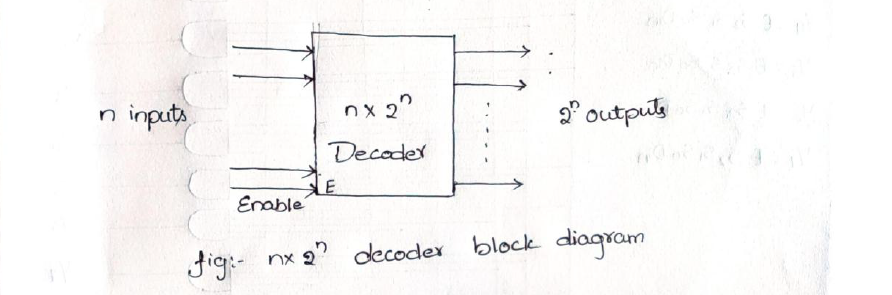 n inputs
n x 2ⁿ
Decoder
E
Enable
2ⁿ outputs
fig:- nx 2ⁿ decoder block diagram